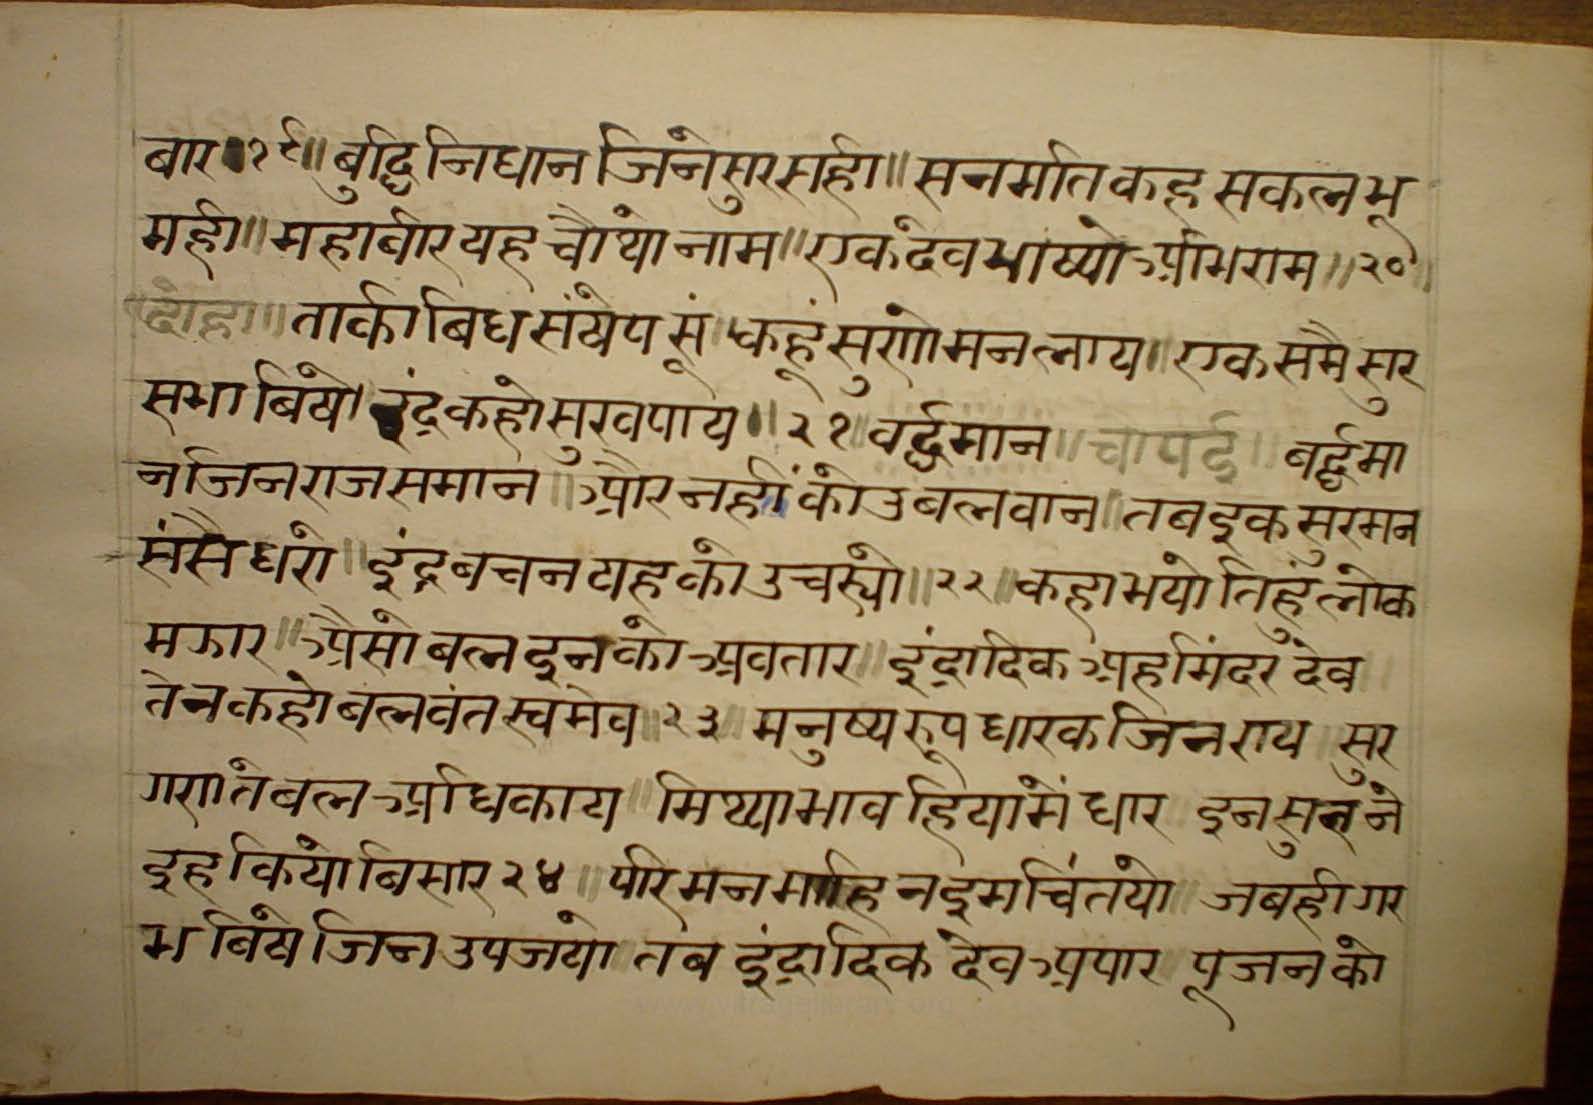 बार १९॥ बुद्धि निधान जिनेसुर सही॥ सनमति कह सकल भू
मही॥ महाबीर यह चौथो नाम॥ एक देव भाष्यो अभिराम॥२०॥
दोहा॥ ताकी बिध संषेप सूं॥ कहूं सुणो मन लाय॥ एक समै सुर
सभा बिषे॥ इंद्र कहो सुख पाय॥ २१॥ वर्द्धमान॥ चौपई॥ बर्द्धमा
न जिनराज समान॥ और नहीं को उ बलवान॥ तब इक सुर मन
संसै धरो॥ इंद्र बचन यह को उचर्यो॥ २२॥ कहा भयो तिहुं लोक
मझार॥ ऐसो बल इनको अवतार॥ इंद्रादिक अहमिंदर देव॥
ते न कहो बलवंत स्वमेव॥२३॥ मनुष्य रूप धारक जिनराय॥ सुर
गण ते बल अधिकाय॥ मिथ्या भाव हिया में धार॥ इन सुर ने
इह कियो बिसार २४॥ परि मन माहि न इम चिंतयो॥ जबही गर
भ बिषे जिन उपजयो॥ तब इंद्रादिक देव अपार॥ पूजन को